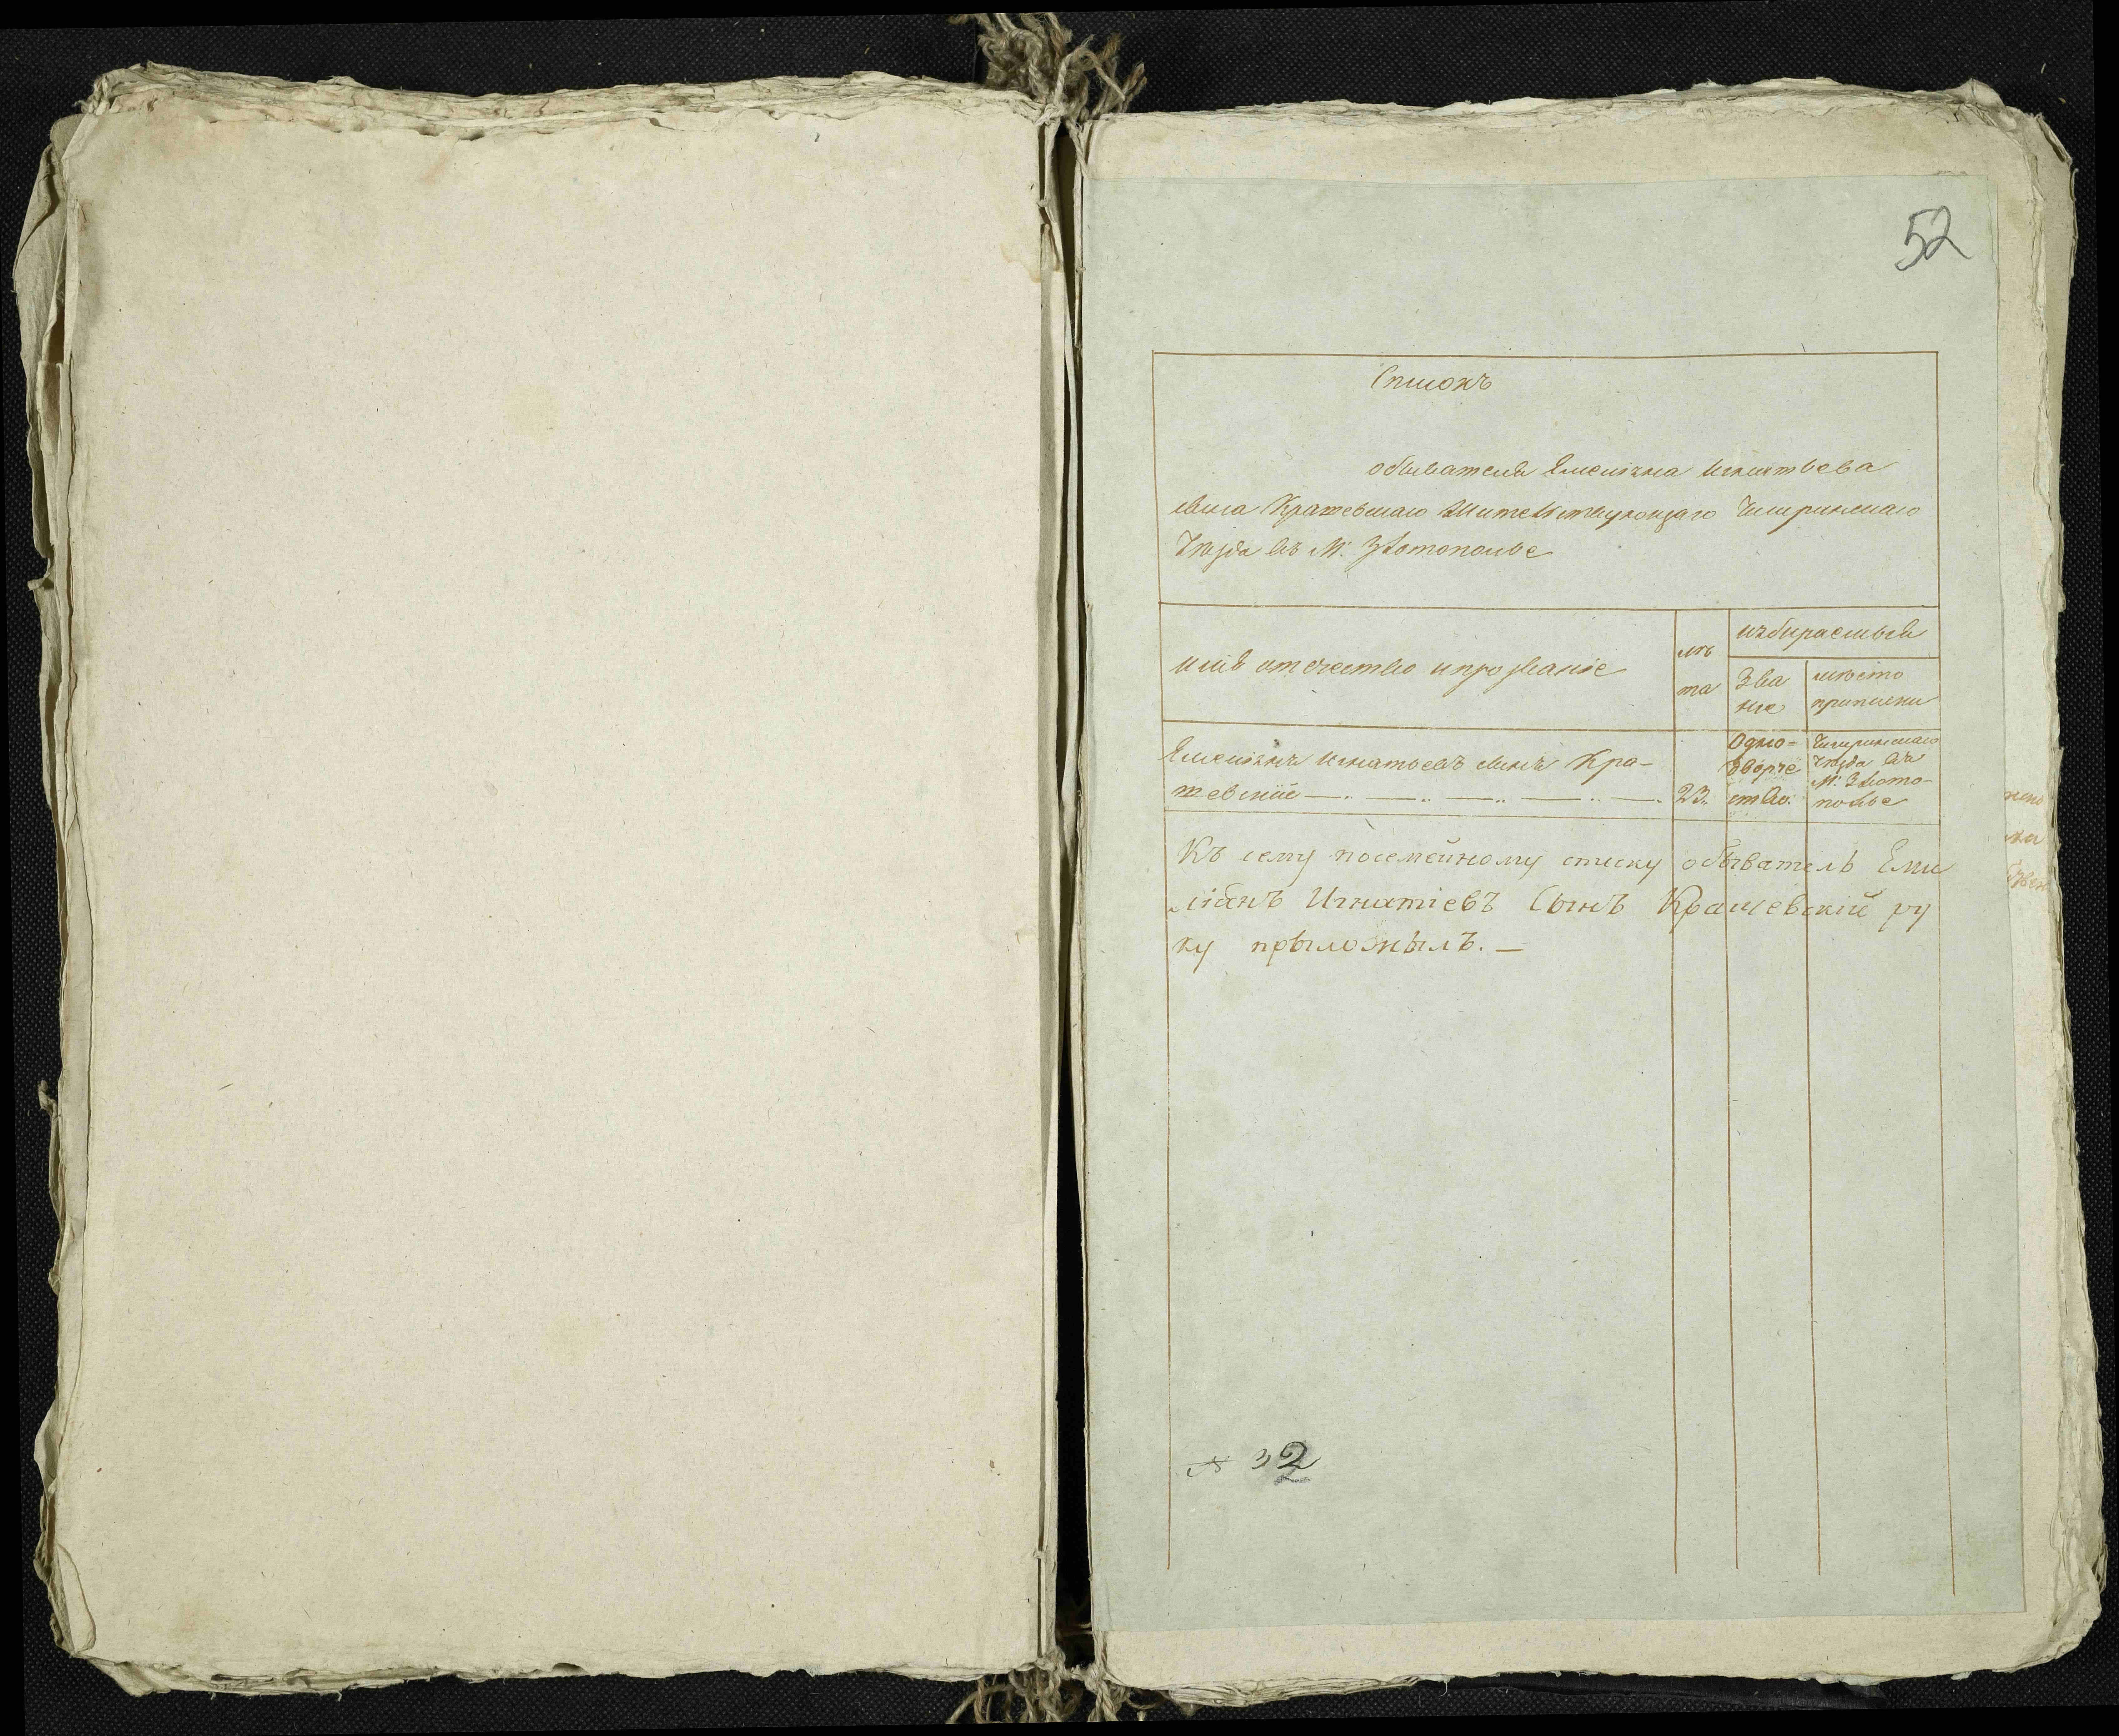 52
Списокъ
обывателя Емелiяна Игнатьева
сына Крашевскаго Жительствующаго Чигринскаго
Уѣзда въ М: Златополье
имя отечество и прозванiе
лѣ
та
избираемыя
Зва
нiе
мѣсто
приписки
Емелiянъ Игнатьевъ сынъ Кра-
шевскiй
23.
Одно=
Дворче
ство.
Чигринскаго
Уѣзда въ
М: Злато-
полье
Къ сему посемейному списку обыватель Еми
лiанъ Игнатiевъ Сынъ Крашевскiй ру
ку прыложылъ. —
№ 32